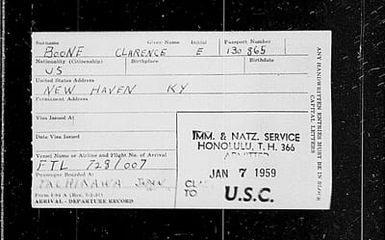 Surname Given Name Initial Passport Number
BOONE CLARENCE E 130 865
Nationality (Citizenship) Birthplace Birthdate
US
United States Address
NEW HAVEN KY
Permanent Address
Visa Issued At
Date Visa Issued
Vessel Name or Airline and Flight No. of Arrival
FTL 728/007
Passenger Boarded At
TACHIKAWA
ARRIVAL - DEPARTURE RECORD
IMM. & NATZ. SERVICE
HONOLULU, T. H. 366
ADMITTED
JAN 7 1959
TO U.S.C.
ANY HANDWRITTEN ENTRIES MUST BE IN BLOCK
CAPITAL LETTERS